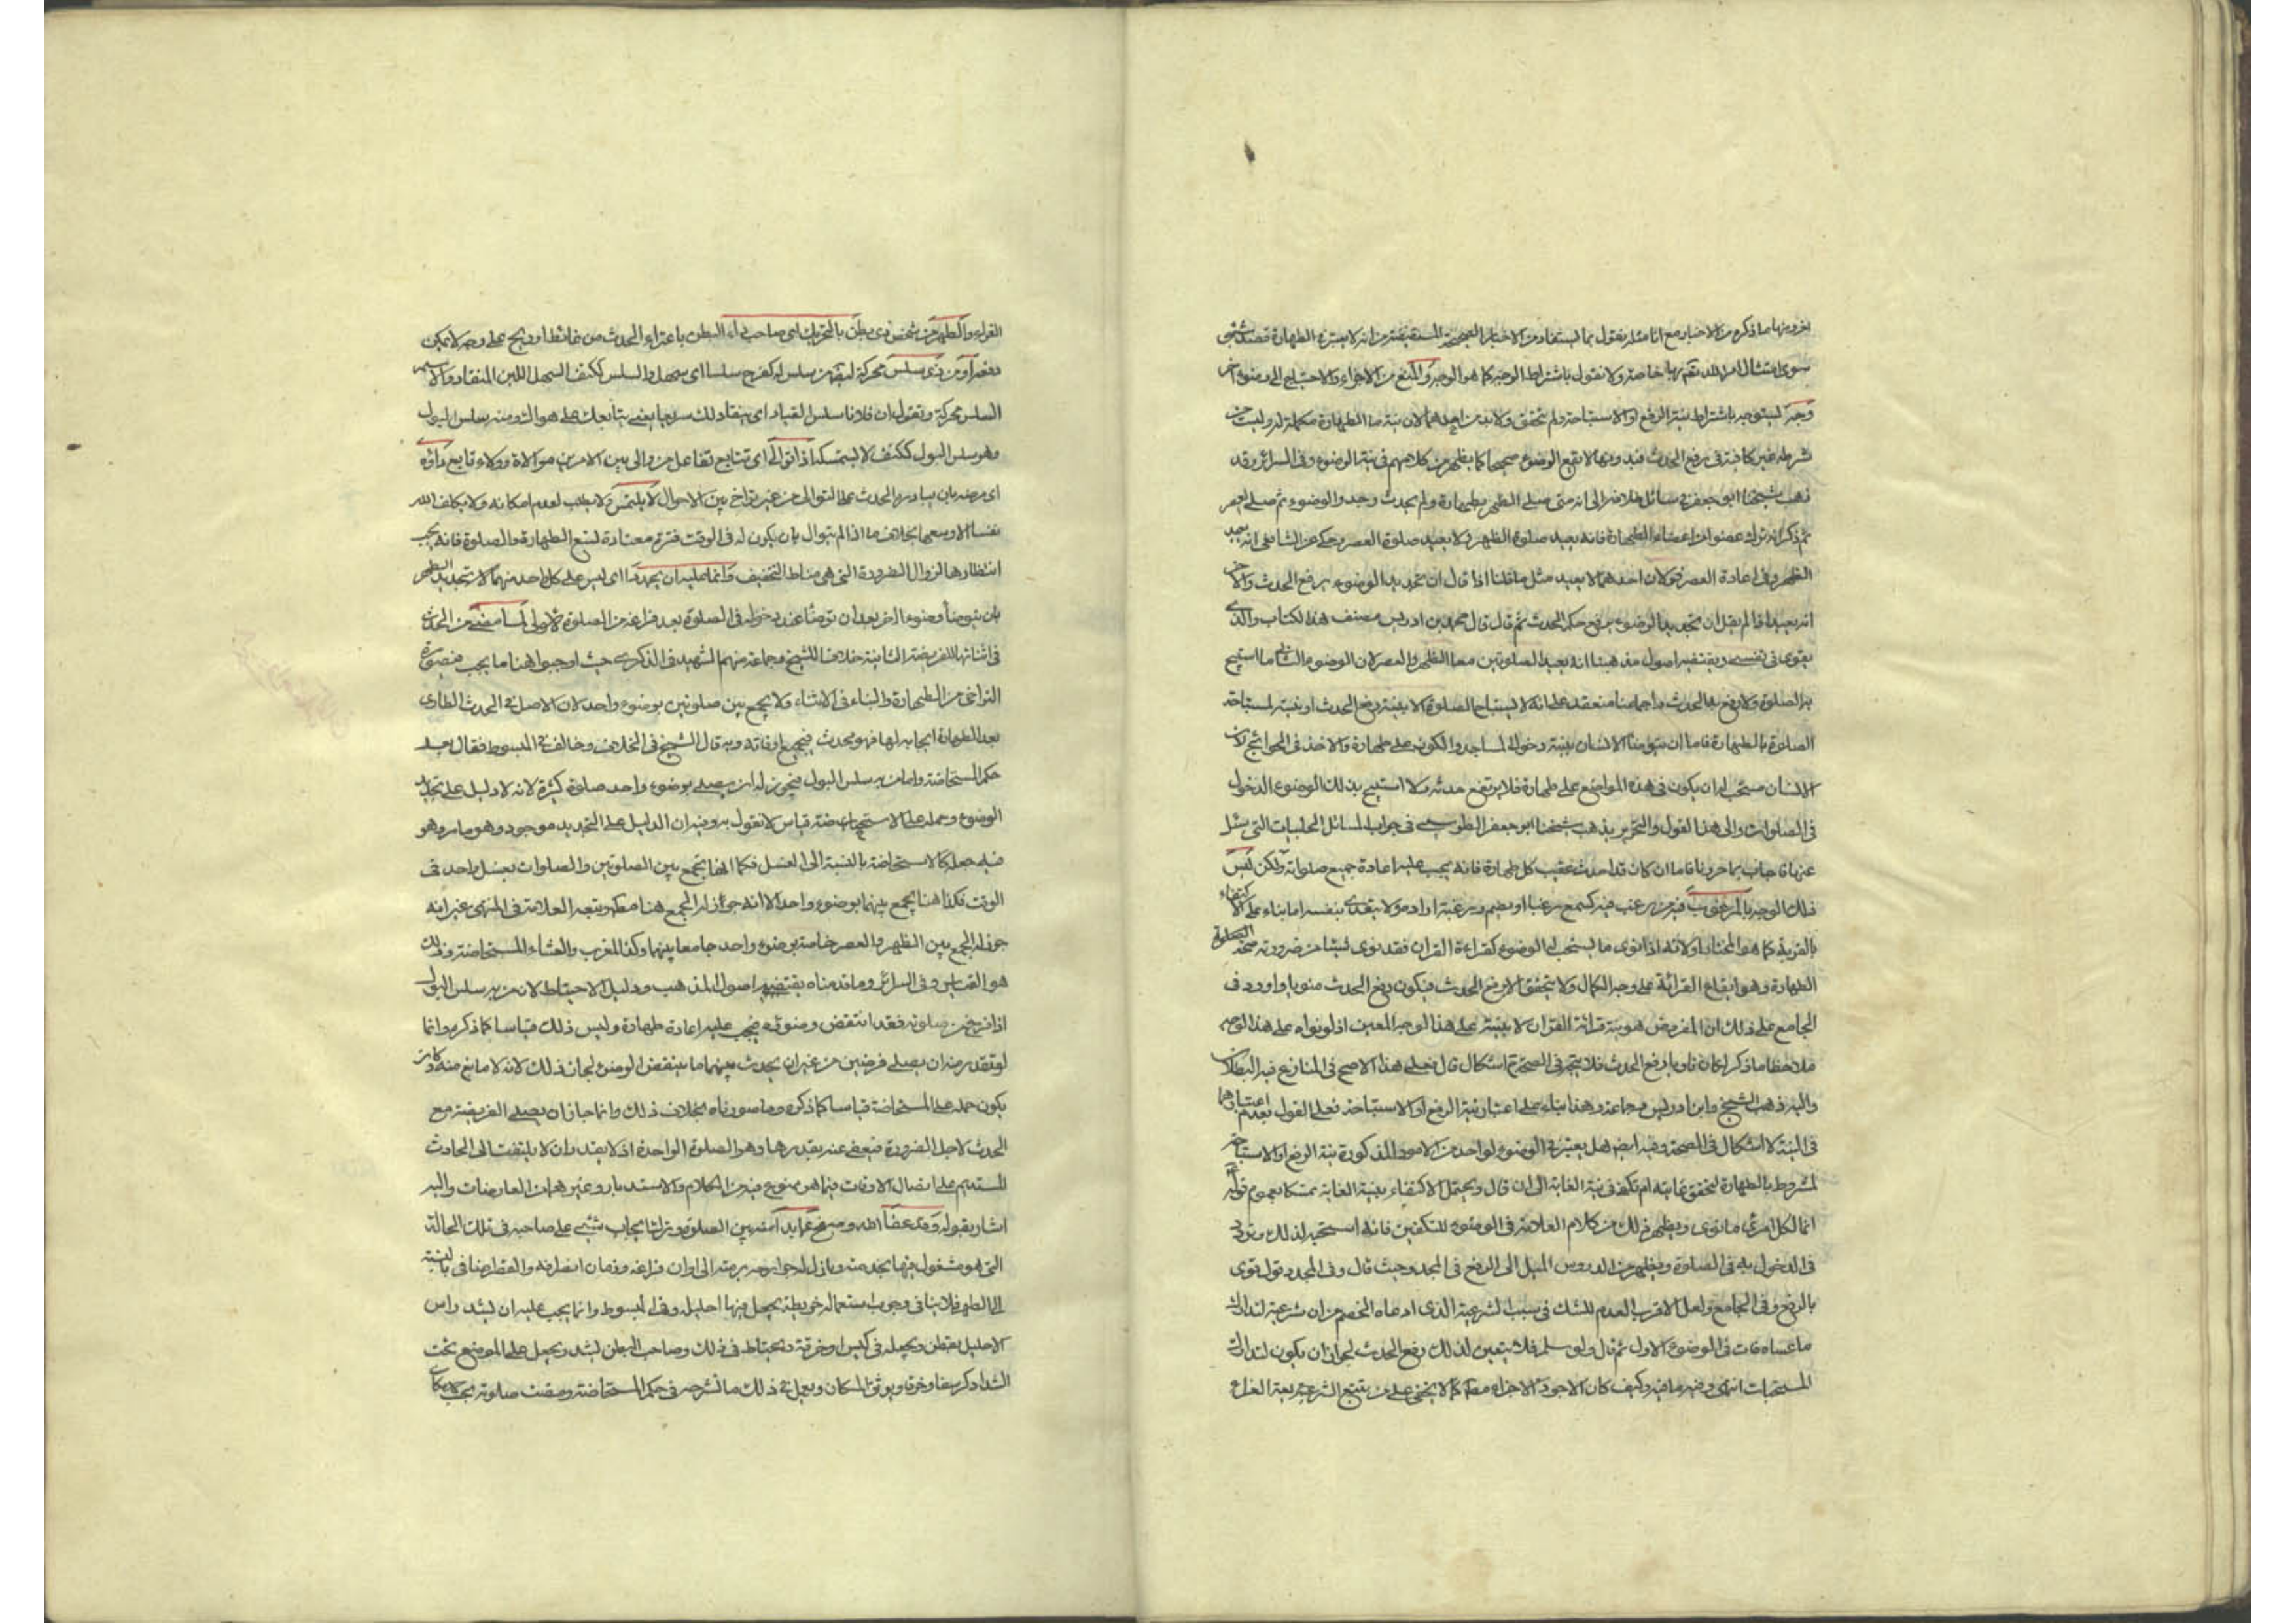 سوى امتثال امر الله تعم بها خاصة ولا نقول باشتراط الوجه كما هو الوجه والمنع من الاجزاء والاحتياج الى وضوء اخر
وجه ليتوجه باشتراط نية الرفع او الاستباحة ولم تحقق ولا بد من احدهما لان نية ما الطهارة مكملة له وليست
شرط غير كافية في رفع الحدث فبدونها لا يقع الوضوء صحيحا كما يظهر من كلامهم في نية الوضوء وفى السرائر وقد
ذهب شيخنا ابي جعفر في مسائل خلافه الى انه متى صلى الظهر بطهارة ولم يحدث وجدد الوضوء ثم صلى العصر
ثم ذكر انه ترك عضوا من اعضاء الطهارة فانه يعيد صلوة الظهر ولا يعيد صلوة العصر وحكى عن الشافعي انه يعيد
الظهر وفى اعادة العصر قولان احدهما لا يعيد مثل ما قلنا اذا قال ان تجديد الوضوء يرفع الحدث والاخر
انه يعيد اذا لم يقل ان تجديد الوضوء يرفع حكم الحدث ثم قال قال محمد بن ادريس مصنف هذا الكتاب والذى
يقوى في نفسى ويقتضيه اصول مذهبنا انه يعيد الصلوتين معا الظهر والعصر لان الوضوء الثانى ما استبيح
به الصلوة ولا رفع به الحدث واجماعنا منعقد على انه لا يستباح الصلوة الا بنية رفع الحدث او نية استباحة
الصلوة بالطهارة فاما ان توضأ الانسان بنية دخول المساجد والكون على طهارة والاخذ في الحوائج لان
الانسان مستحب له ان يكون في هذه المواضع على طهارة فلا يرتفع حدثه ولا استبيح بذلك الوضوء الدخول
في الصلوات والى هذا القول والتحرير يذهب شيخنا ابو جعفر الطوسى في جواب المسائل الحلبيات التى سئل
عنها فاجاب بما حررناه فاما ان كان قد احدث عقيب كل طهارة فانه يجب عليه اعادة جميع صلواته ولكن ليس
ذلك الوجه بالمرغوب فيه من رغب فيه كسمع رغبا ويضم ورغبة اراده ولا يتعدى بنفسه اما بناء على الاكتفاء
بالقربة كما هو المختار ولانه اذا نوى ما يستحب له الوضوء كقراءة القران فقد نوى شيئا من ضرورته صحة الطهارة
الطهارة وهو ايقاع القرائة على وجه الكمال ولا يتحقق الا برفع الحدث فيكون رفع الحدث منويا واورد في
الجامع على ذلك ان المفروض هو نية قرائة القران لا بنيته على هذا الوجه المعين اذ لو نواه على هذا الوجه
ملاحظا ما ذكر كان ناويا رفع الحدث فلا يتجه في الصحة ثم اشكال قال فعلى هذا الاصح في المنازع فيه البطلان
واليه ذهب الشيخ وابن ادريس وجماعة وهذا بناء على اعتبار نية الرفع او الاستباحة فعلى القول بعدم اعتبارهما
في النية لا اشكال في الصحة وفيه ايض هل يعتبر في الوضوء لواحد من الامور المذكورة نية الرفع او الاستباحة
لمشروط بالطهارة لتحقق غايته ام تكفى نية الغاية الى ان قال ويحتمل الاكتفاء بنية الغاية تمسكا بعموم قوله
انما لكل امرئ ما نوى ويظهر ذلك من كلام العلامة في الوضوء للتكفين فانه استحبه لذلك وتردد
في الدخول به في الصلوة ويظهر من الدروس الميل الى الرفع في المجدد حيث قال وفى المجدد قول قوى
بالرفع وفى الجامع ولعل الاقرب العدم للشك في سبب الشرعية الذى ادعاه الخصم من ان شرعيته لتدارك
ما عساه فات في الوضوء الاول ثم قال ولو سلم فلا يتعين لذلك رفع الحدث لجواز ان يكون لتدارك
المستحبات انتهى وفيه ما فيه وكيف كان الاجود الاجزاء مطلقا كما لا يخفى على من يتتبع الشرعية
القراء والطهر من شخص ذى بطن بالتحريك اى صاحب داء البطن باعتراء الحدث من غائط او ريح على وجه لا يمكن
دفعه او من ذى سلس محركة لسلس له كفرح سلسا اى سهل والسلس ككتف السهل اللين المنقاد والاسم
السلس محركة وتقول ان فلانا سلس القياد اى ينقاد لك سريعا يعنى يتابعك على هواك ومنه سلس البول
وهو سلس البول ككتف لا يستمسك اذا توالى اى تتابع تفاعل من والى بين الامرين موالاة وولاء تابع داؤه
اى مرضه بان يبادره الحدث على التوالى من غير تراخ بين الاحوال لا يلتمس ولا يطلب لعدم امكانه ولا يكلف الله
نفسا الا وسعها بخلاف ما اذا لم يتوال بان يكون له في الوقت فترة معتادة لتسع الطهارة والصلوة فانه يجب
انتظارها لزوال الضرورة التى هى مناط التخفيف وانما عليه ان يجددا اى ليس على كل واحد منهما الا تجديد الطهر
بان يتوضأ وضوءا اخر بعد ان توضأ عند دخوله في الصلوة بعد فراغه من الصلوة الاولى لما مضى من الحدث
في اثنائها للفريضة الثانية خلافا للشيخ وجماعة منهم الشهيد في الذكرى حيث اوجبوا هنا ما يجب في صورة
التراخى من الطهارة والبناء في الاثناء ولا يجمع بين صلوتين بوضوء واحد لان الاصل في الحدث الطارى
بعد الطهارة ايجابه لها فهو محدث في جميع اوقاته وبه قال الشيخ في الخلاف وخالف في المبسوط فقال بعد
حكم المستحاضة واما من به سلس البول فيجوز له ان يصلى بوضوء واحد صلوة كثيرة لانه لا دليل على تجديد
الوضوء وحمله على الاستحاضة قياس لا نقول به وفيه ان الدليل على التجديد موجود وهو ما مر وهو
فيه جعله كالاستحاضة بالنسبة الى الغسل فكما انها تجمع بين الصلوتين والصلوات بغسل واحد في
الوقت فكذا هنا يجمع بينهما بوضوء واحد الا انه جوز له الجمع هنا مطلقا وتبعه العلامة في المنتهى غير انه
جوز له الجمع بين الظهر والعصر خاصة بوضوء واحد جامعا بينهما وكذا المغرب والعشاء كالمستحاضة وذلك
هو القياس وفى السرائر وما قدمناه يقتضيه اصول المذهب ودليل الاحتياط لان من به سلس البول
اذا فرغ من صلوته فقد انتقض وضوئه فيجب عليه اعادة طهارة وليس ذلك قياسا كما ذكره وانما
لو تقدر منه ان يصلى فرضين من غير ان يحدث بينهما ما ينقض الوضوء لجاز ذلك لانه لا مانع منه وكان
يكون حمله على المستحاضة قياسا كما ذكره وما صورناه بخلاف ذلك وانما جاز ان يصلى الفريضة مع
الحدث لاجل الضرورة فيعفى عنه بقدرها وهو الصلوة الواحدة اذ لا يقدر ان لا يلتفت الى الحادث
المستديم على اتصال الاوقات فيما هو ممنوع فيه من الكلام والاستدبار وغيرهما من العارضات واليه
اشار بقوله وقد عفا الله وصفح عما بدا منه بين الصلوة وترك ايجاب شئ على صاحبه في تلك الحالة
التى هو مشغول فيها بخدمته وباذل له جوارحه برمته الى اوان فراغه وزمان انصرافه والعفو مضافا بالنسبة
الى الطهر فلا ينافى وجوب استعماله خريطة يجعل فيها احليله وفى المبسوط وانما يجب عليه ان يشد راس
الاحليل بقطن ويجعله في كيس او خرقة ويحتاط في ذلك وصاحب البطن ليشد ويجعل على الموضع تحت
الشداد كرسفا وخرقا ويوثق المكان ويعمل في ذلك ما نشرحه في حكم المستحاضة ومضت صلوته